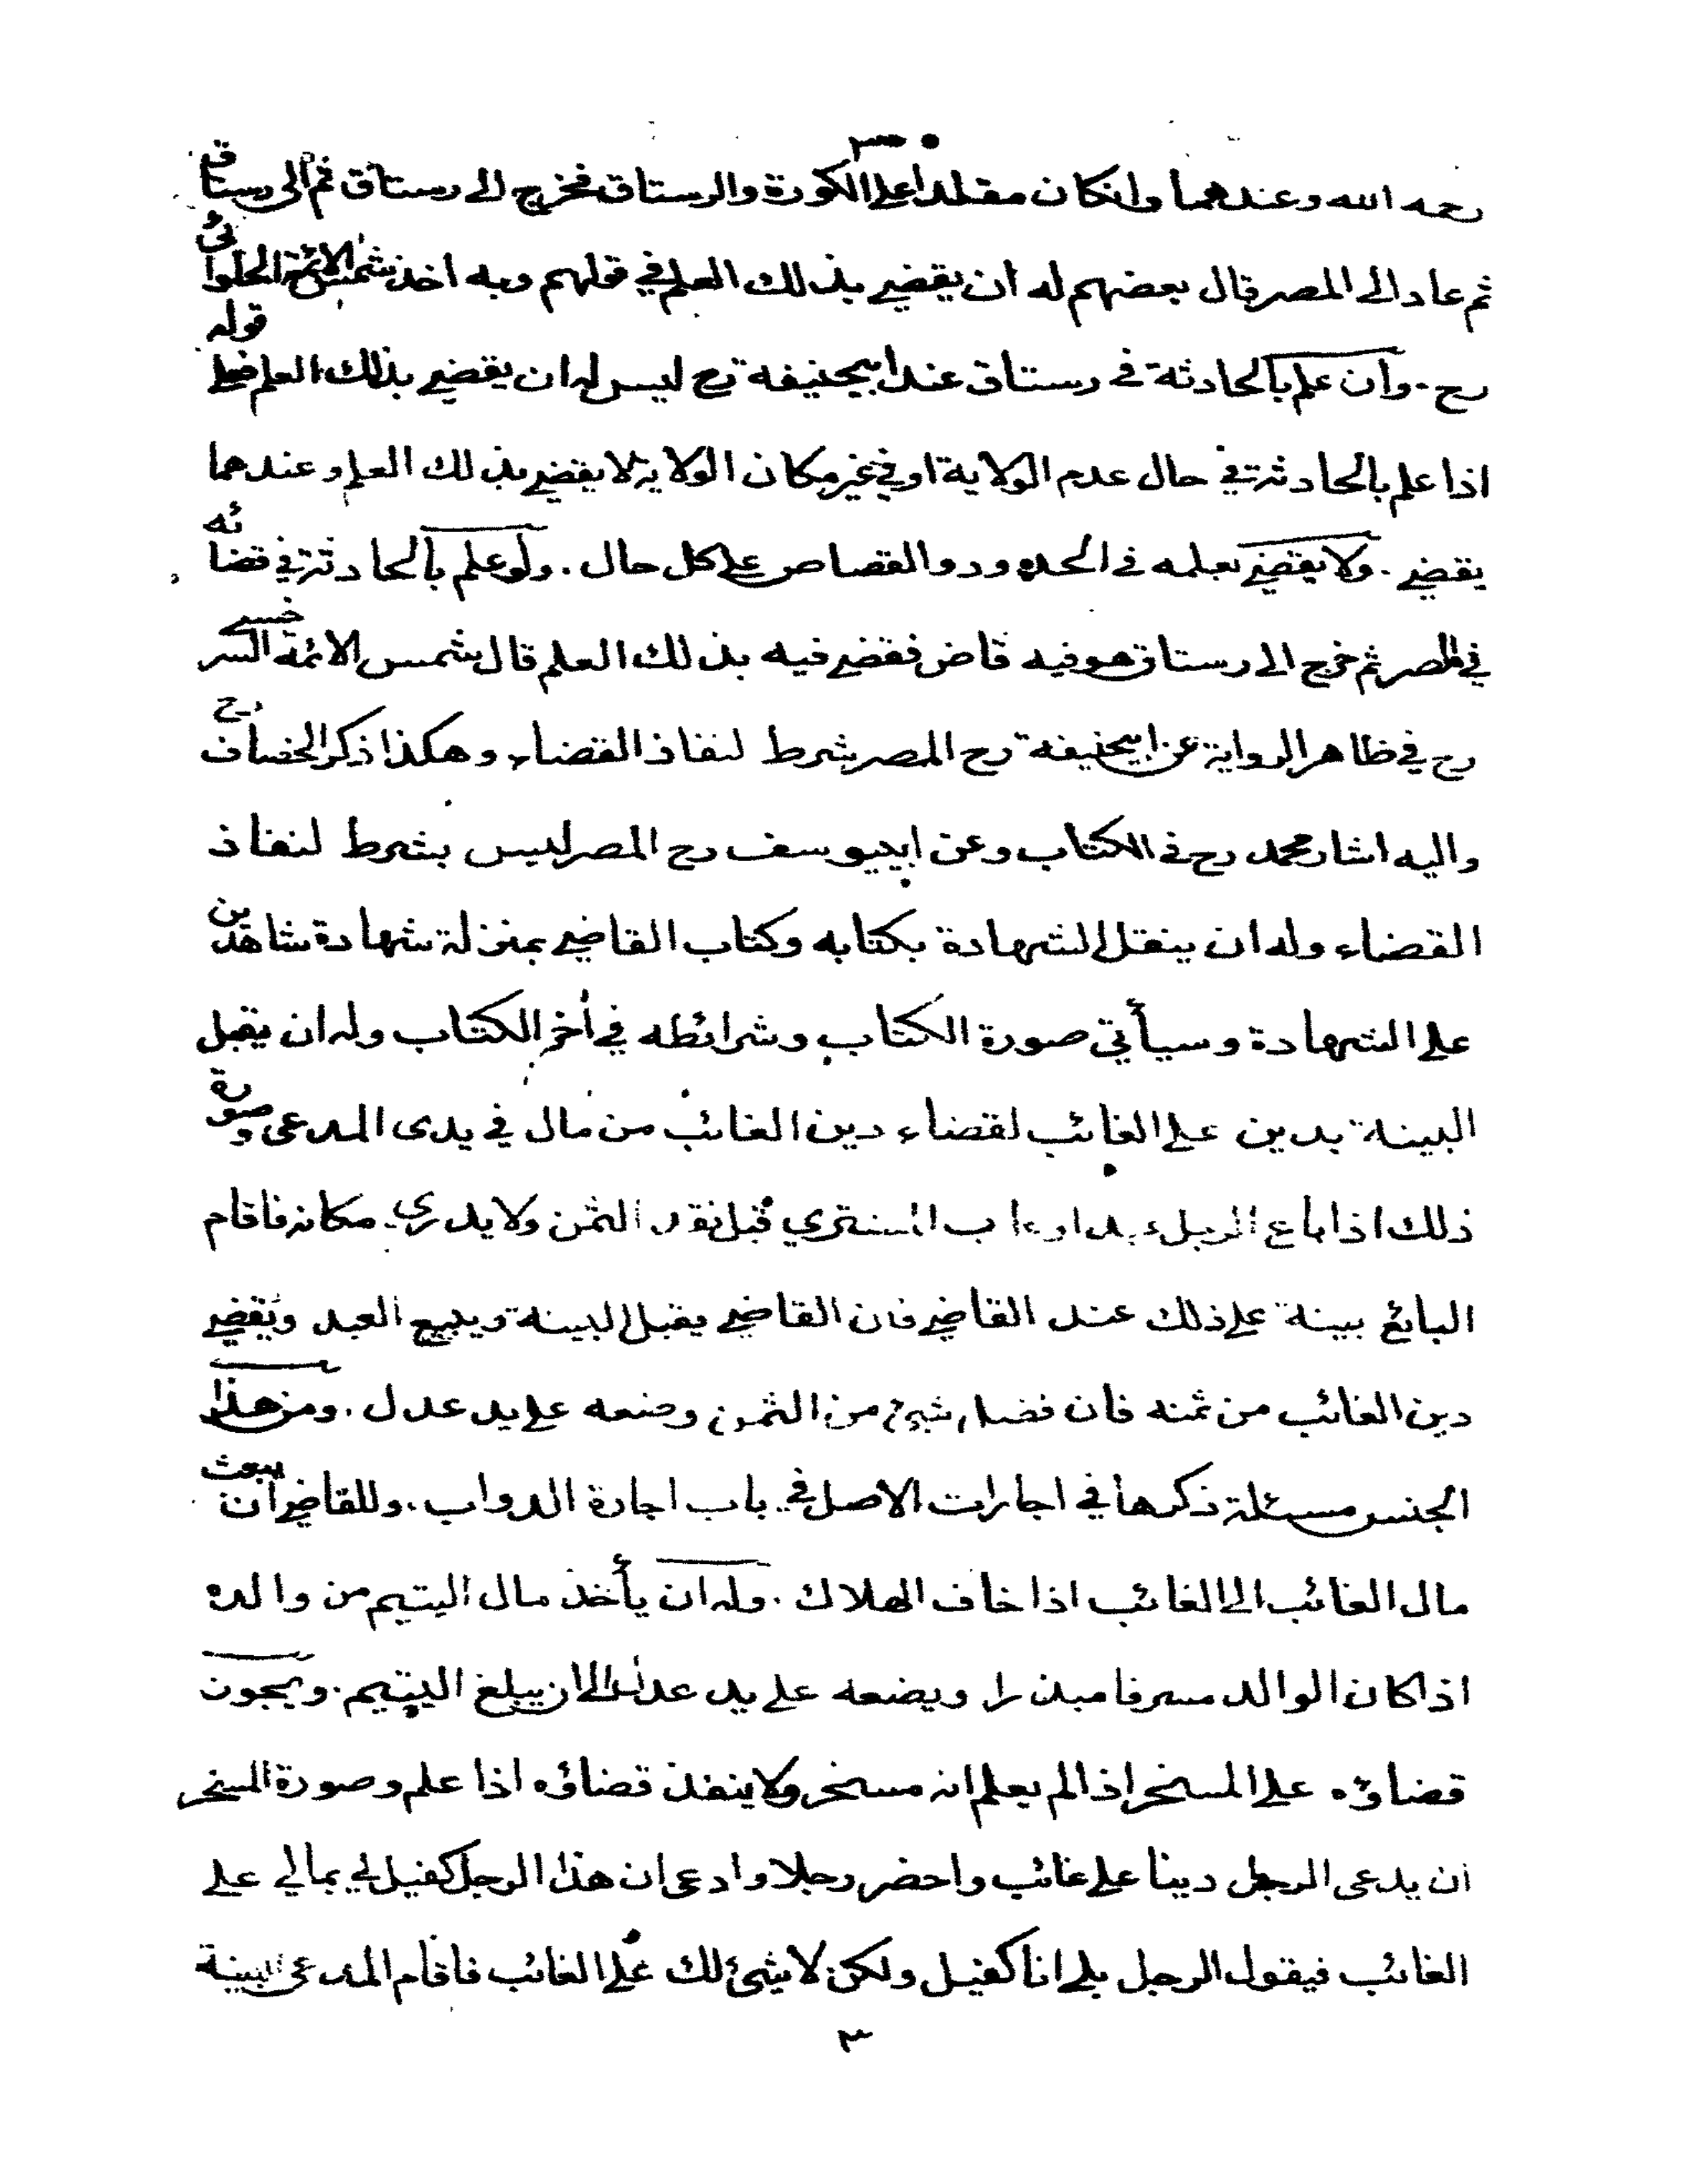 ٣٠
رحمه الله وعندهما وان كان مقلدا على الكورة والرستاق فخرج الى رستاق ثم الى رستاق
ثم عاد الى المصر قال بعضهم له أن يقضي بذلك العلم في قولهم وبه اخذ شمس الائمة الحلوائى
رح. وان علم بالحادثة في رستاق عند ابيحنيفة رح ليس له ان يقضي بذلك العلم فعلى قوله
اذا علم بالحادثة في حال عدم الولاية او في غير مكان الولاية لا يقضي بذلك العلم وعندهما
يقضي. ولا يقضي بعلمه في الحدود والقصاص على كل حال. ولو علم بالحادثة في قضائه
في المصر ثم خرج الى رستاق هو فيه قاض فقضى فيه بذلك العلم قال شمس الائمة السرخسي
رح في ظاهر الرواية عن ابيحنيفة رح المصر شرط لنفاذ القضاء وهكذا ذكر الخصاف رح
واليه اشار محمد رح في الكتاب وعن ابييوسف رح المصر ليس بشرط لنفاذ
القضاء وله ان ينقل الشهادة بكتابه وكتاب القاضي بمنزلة شهادة شاهدين
على الشهادة وسيأتي صورة الكتاب وشرائطه في أخر الكتاب وله ان يقبل
البينة بدين على الغائب لقضاء دين الغائب من مال في يدى المدعى وصورة
ذلك اذا باع الرجل عبدا وغاب المشتري قبل نقد الثمن ولا يدري مكانه فاقام
البائع بينة على ذلك عند القاضي فان القاضي يقبل البينة ويبيع العبد ويقضي
دين الغائب من ثمنه فان فضل شيئ من الثمن وضعه على يد عدل. ومن هذا
الجنس مسئلة ذكرها في اجارات الاصل في باب اجارة الدواب. وللقاضي ان يبعث
مال الغائب الى الغائب اذا خاف الهلاك. وله ان يأخذ مال اليتيم من والده
اذا كان الوالد مسرفا مبذرا ويضعه على يد عدل الى ان يبلغ اليتيم. ويجوز
قضاؤه على المسخر اذا لم يعلم انه مسخر ولا ينفذ قضاؤه اذا علم وصورة المسخر
ان يدعى الرجل دينا على غائب واحضر رجلا وادعى ان هذا الرجل كفيل لي بمالي على
الغائب فيقول الرجل بلى انا كفيل ولكن لا شيئ لك على الغائب فاقام المدعى البينة
٣